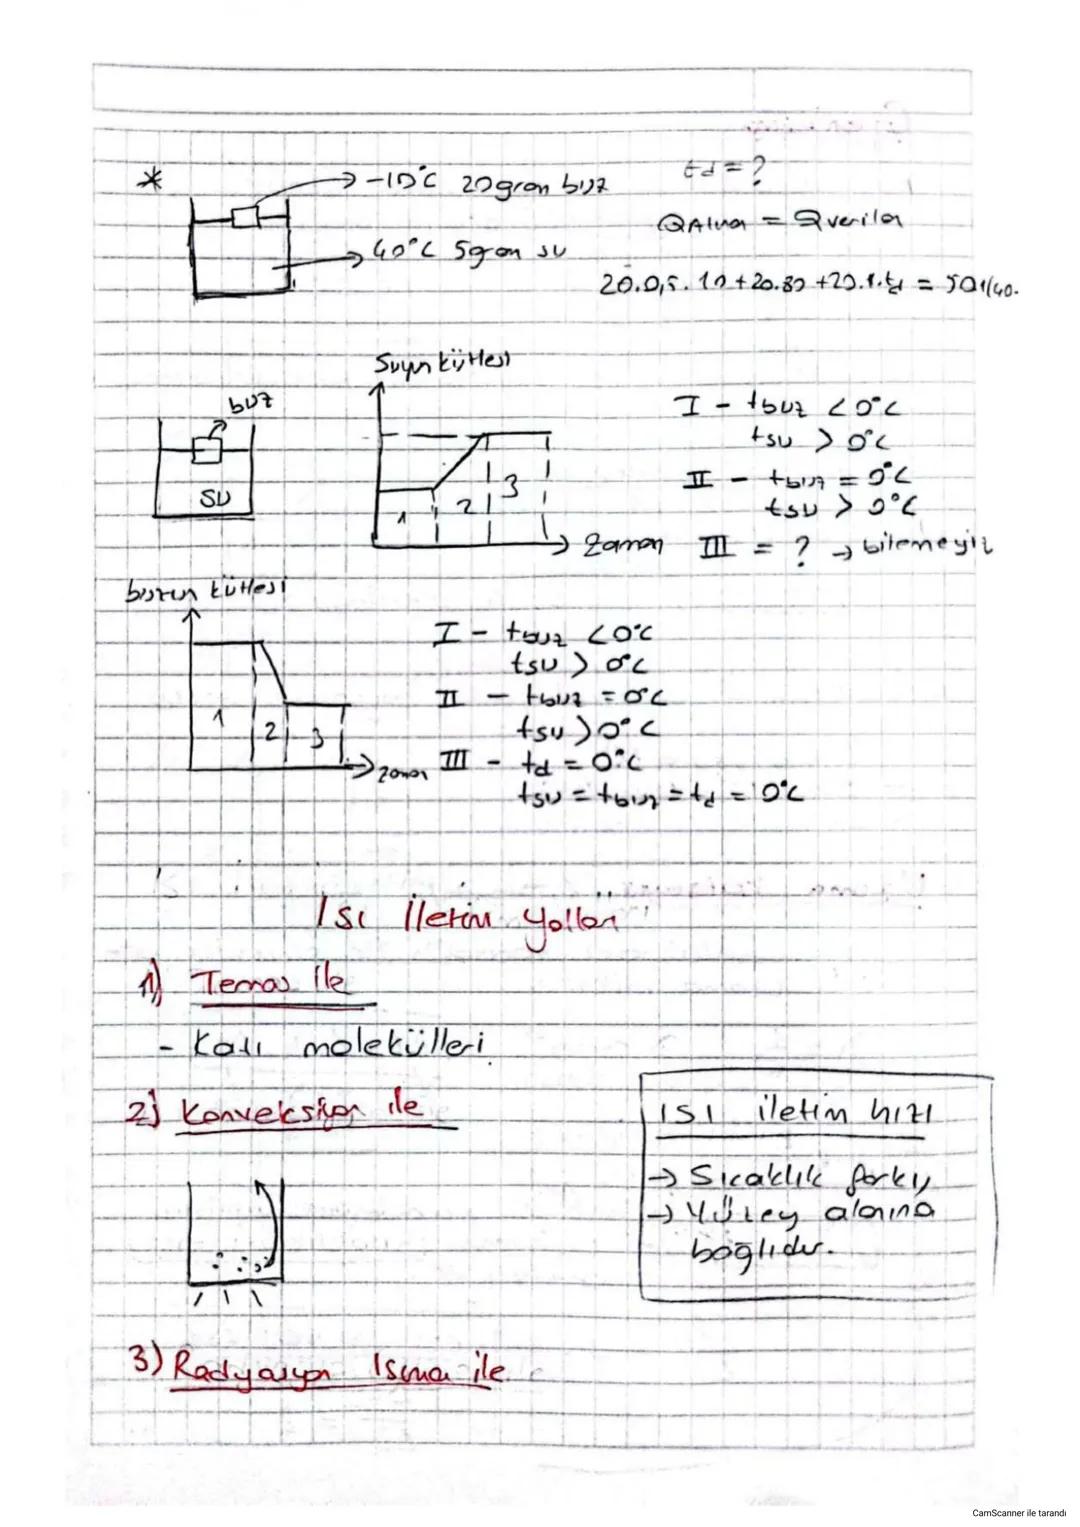 * → -10°C 20gram buz
td = ?
→ 40°C 5gram su
QAlınan = Qverilen
20.0,5.10+20.80+20.1.td = 50.1(40-
Suyun kütlesi
buz
SU
1 2 3
→ Zaman
I - tbuz < 0°C
tsu > 0°C
II - tbuz = 0°C
tsu > 0°C
III = ? → bilemeyiz
buzun kütlesi
1 2 3
→ zaman
I - tbuz < 0°C
tsu > 0°C
II - tbuz = 0°C
tsu > 0°C
III - td = 0°C
tsu = tbuz = td = 0°C
Isı İletim Yolları
1) Temas ile
- Katı molekülleri
2) Konveksiyon ile
ISI iletim hızı
→ Sıcaklık farkı,
→ Yüzey alanına
bağlıdır.
3) Radyasyon Işıma ile
CamScanner ile tarandı